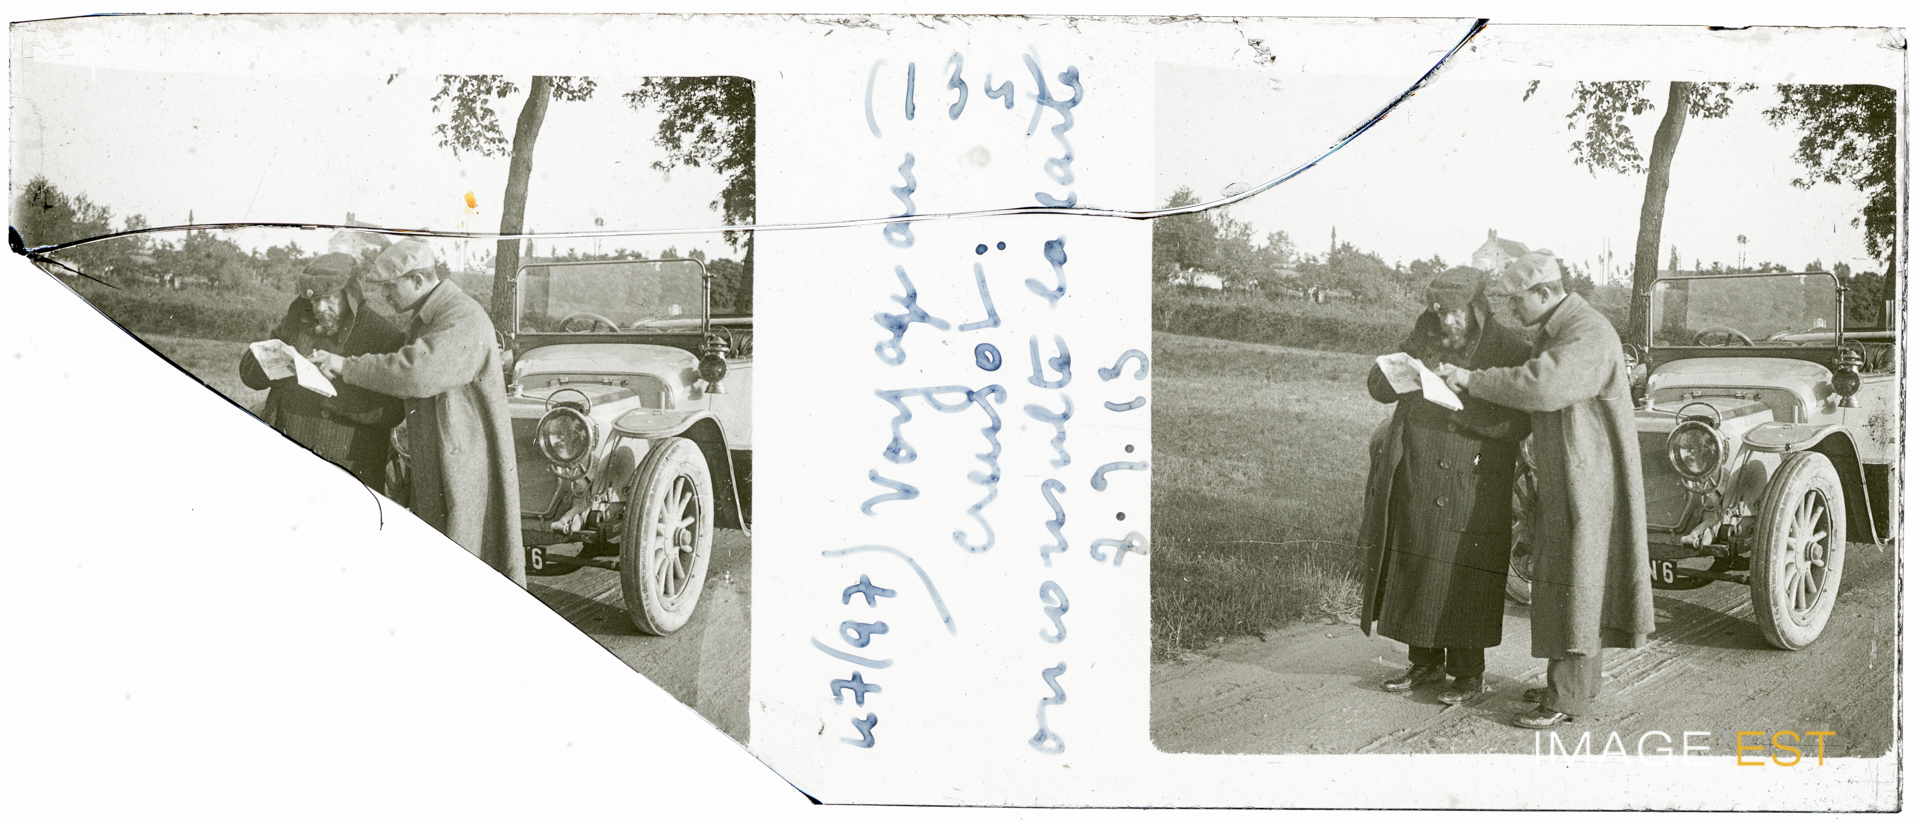 47/97) Voyage au (134)
creusot:
on consulte la carte
7.7.13
N 6
6
IMAGE EST